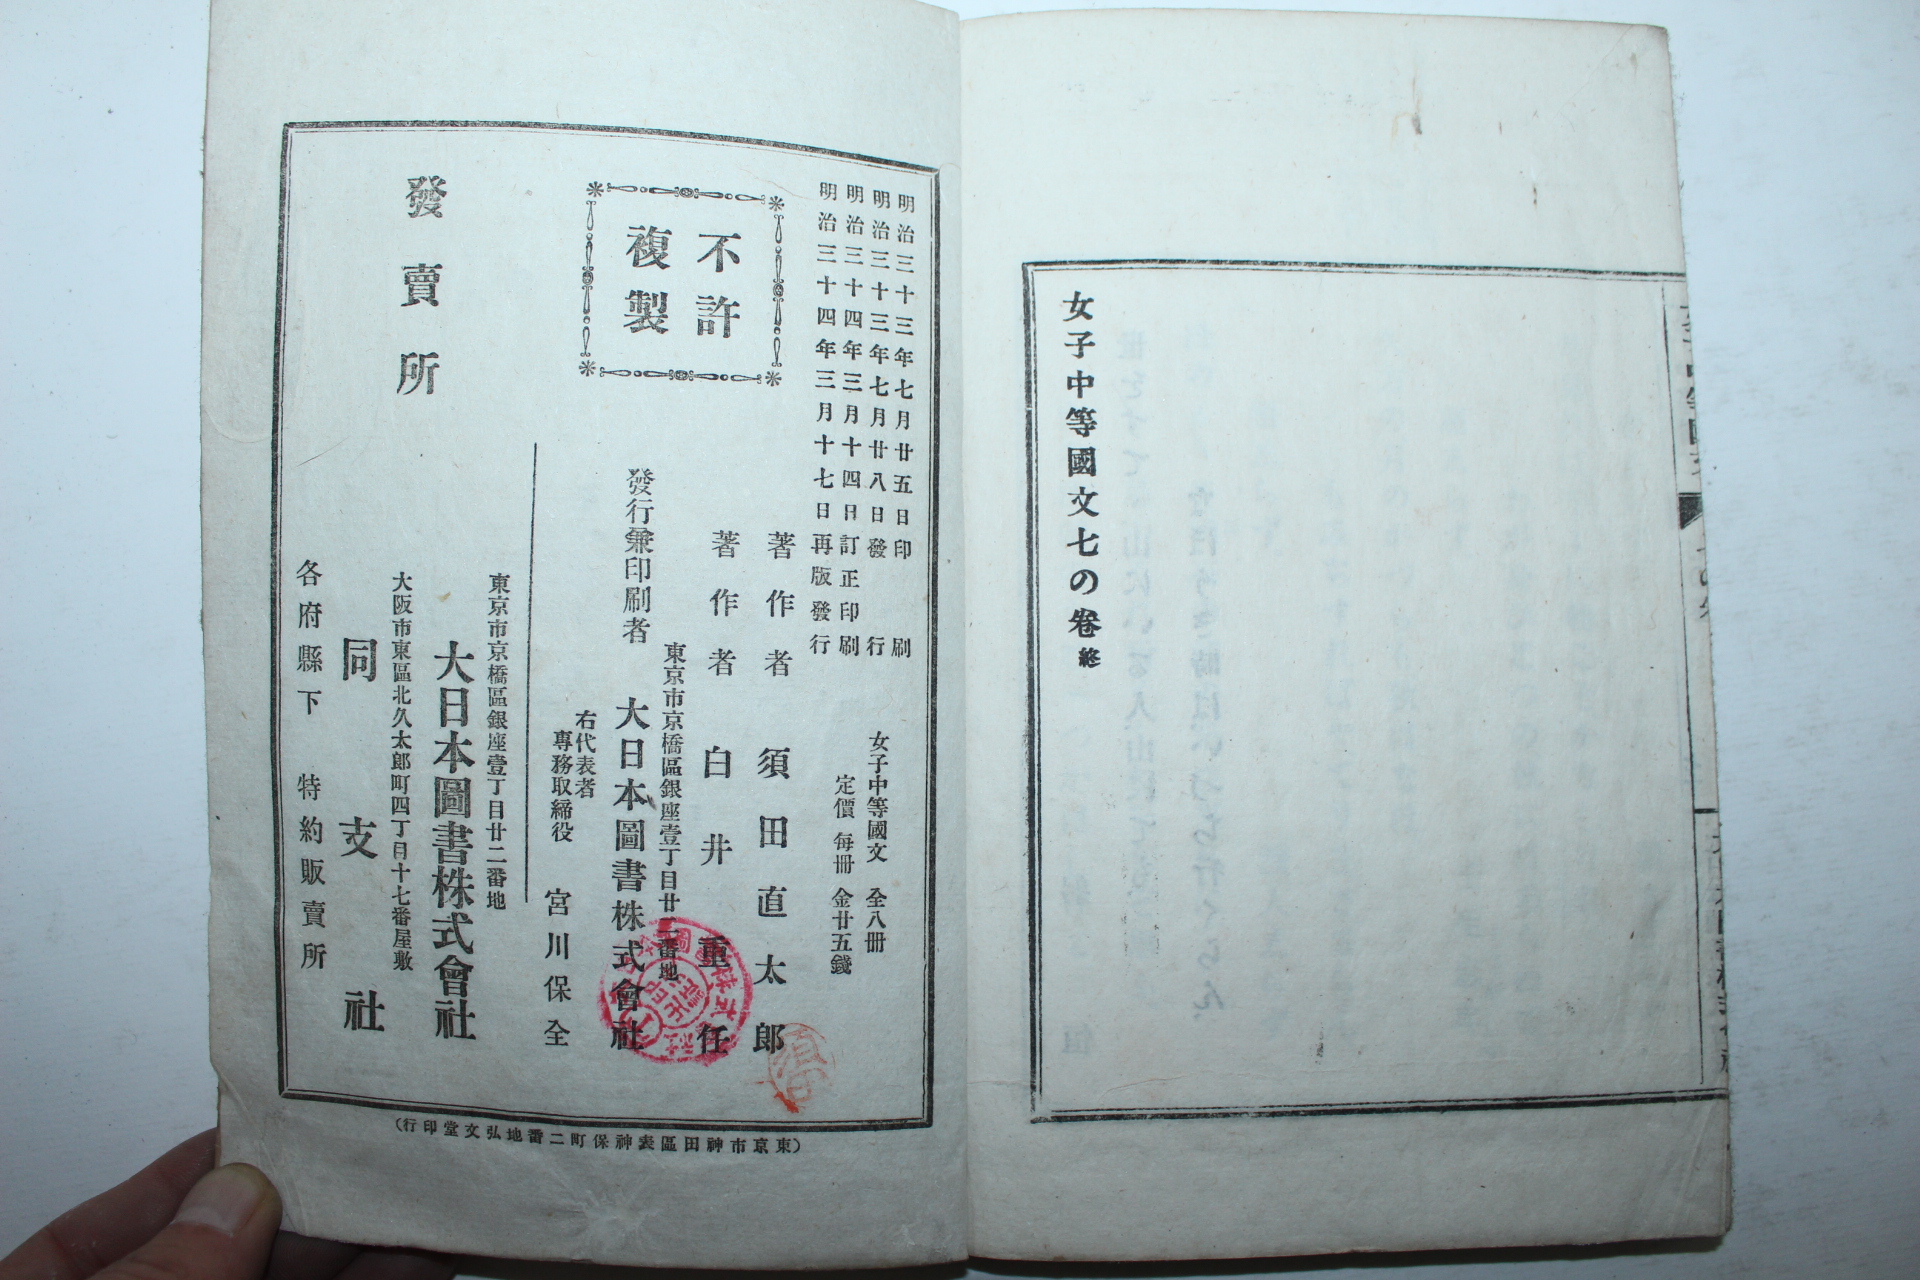 女子中等國文七の卷 終
明治三十三年七月廿五日印刷
明治三十三年七月廿八日發行
明治三十四年三月十四日訂正印刷
明治三十四年三月十七日再版發行
女子中等國文 全八冊
定價 每冊 金廿五錢
不許
複製
著作者 須田直太郎
著作者 白井重任
東京市京橋區銀座壹丁目廿二番地
發行兼印刷者 大日本圖書株式會社
右代表者
專務取締役 宮川保全
發賣所
東京市京橋區銀座壹丁目廿二番地
大日本圖書株式會社
大阪市東區北久太郎町四丁目十七番屋敷
同支社
各府縣下 特約販賣所
(東京市神田區表神保町二番地弘文堂印行)